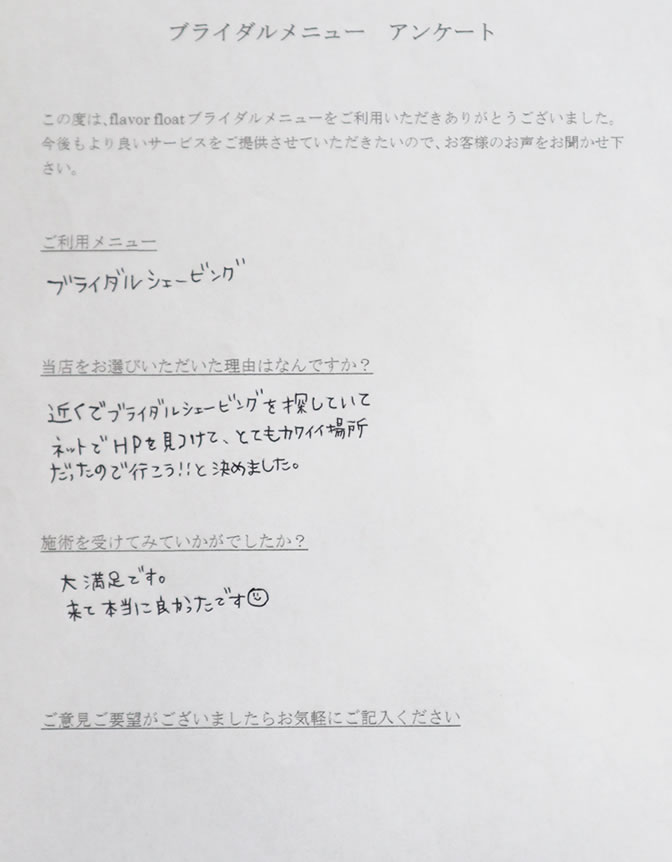 ブライダルメニュー　アンケート
この度は、flavor floatブライダルメニューをご利用いただきありがとうございました。
今後もより良いサービスをご提供させていただきたいので、お客様のお声をお聞かせ下
さい。
ご利用メニュー
ブライダルシェービング
当店をお選びいただいた理由はなんですか？
近くでブライダルシェービングを探していて
ネットでHPを見つけて、とてもカワイイ場所
だったので行こう!!と決めました。
施術を受けてみていかがでしたか？
大満足です。
来て本当に良かったです☺
ご意見ご要望がございましたらお気軽にご記入ください